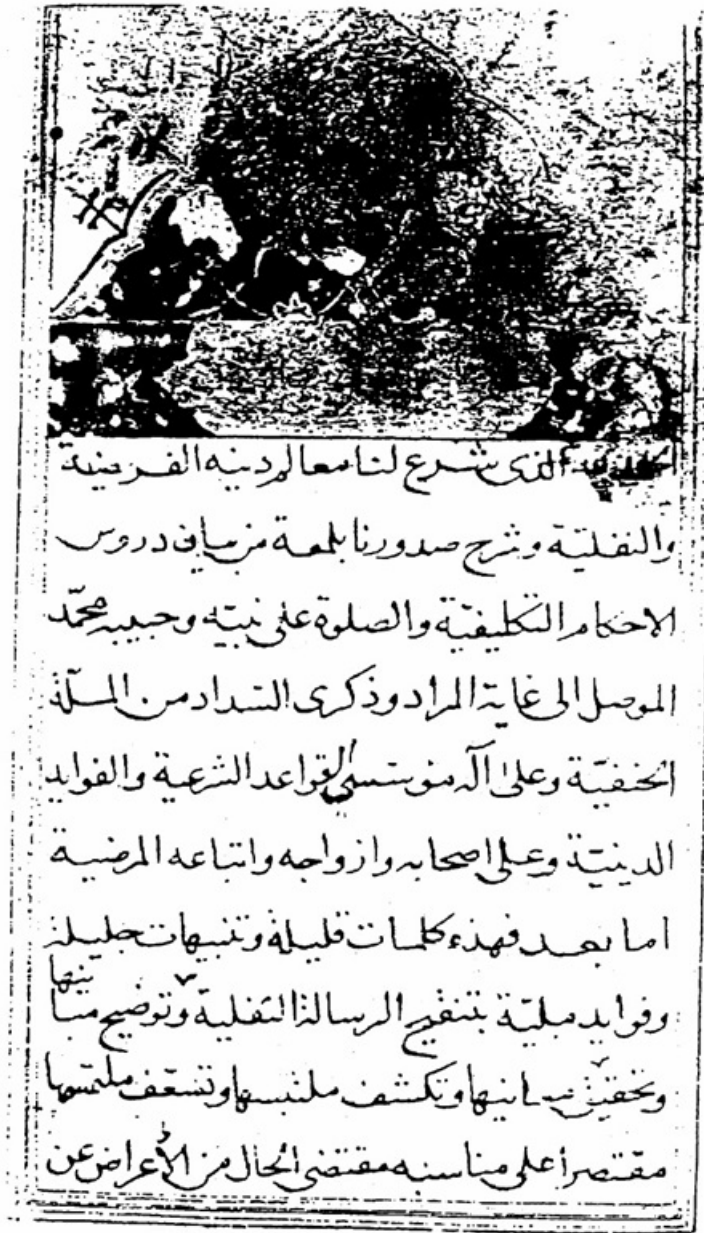 الحمد لله الذى شرع لنا معالم دينه الفرضية
والنفلية وشرح صدورنا بلمعة من بيان دروس
الاحكام التكليفيّة والصلوة على نبيّه وحبيبه محمّد
الموصل الى غاية المراد وذكرى السداد من الملّة
الحنفيّة وعلى آله موسّسى القواعد الشرعية والفوايد
الدينيّة وعلى اصحابه وازواجه واتباعه المرضية
اما بعد فهذه كلمات قليلة وتنبيهات جليلة
وفوايد مبليّة بتنقيح الرسالة النفلية وتوضيح مبانيها
وتحقيق معانيها وتكشف ملتبسها وتسعف ملتمسها
مقتصراً على مناسبه مقتضى الحال من الأعراض عن